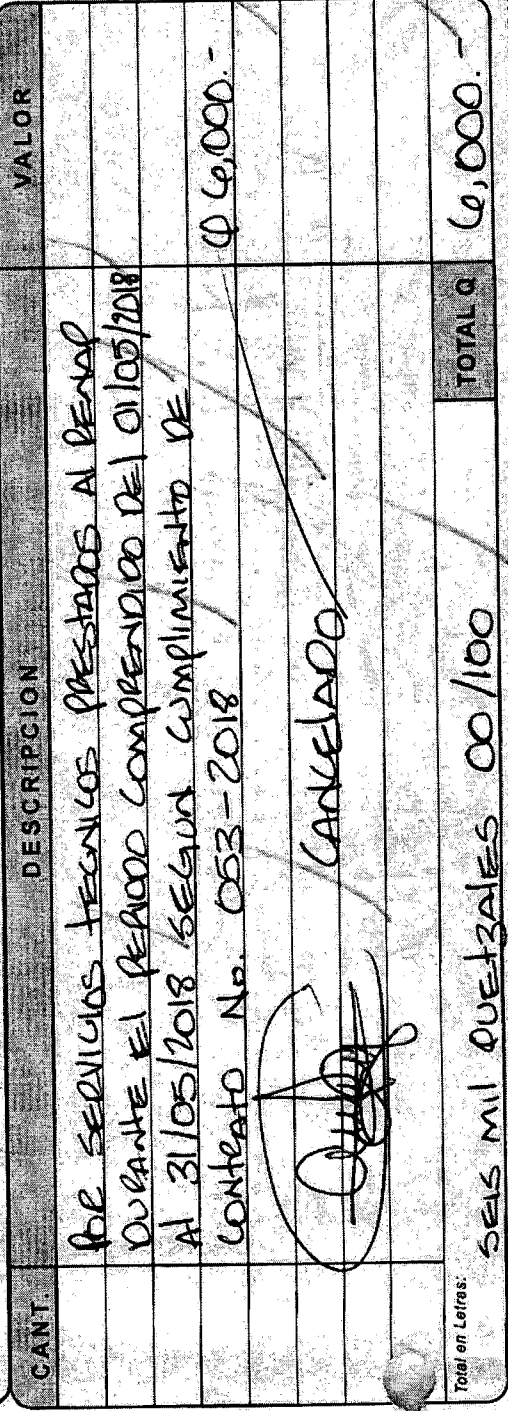 CANT. DESCRIPCION VALOR
POR SERVICIOS TECNICOS PRESTADOS Al RENAP
DURANTE El PERIODO COMPRENDIDO DEl 01/05/2018
Al 31/05/2018 SEGUN CUMPLIMIENTO DE
CONTRATO No. 053-2018 Q 6,000.-
CANCELADO
Total en Letras: SEIS Mil QUETZALES 00/100 TOTAL Q 6,000.-